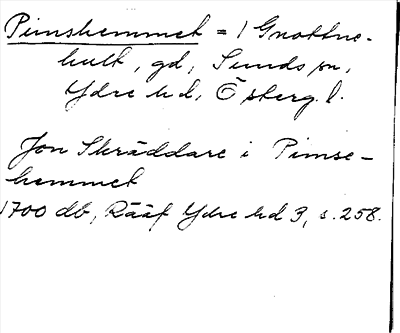 Pimshemmet = / Gnottne-
hult, gd, Sunds sn,
Ydre hd, Österg. l.
Jon Skräddare i Pimse-
hemmet
1700 db, Rääf Ydre hd 3, s. 258.